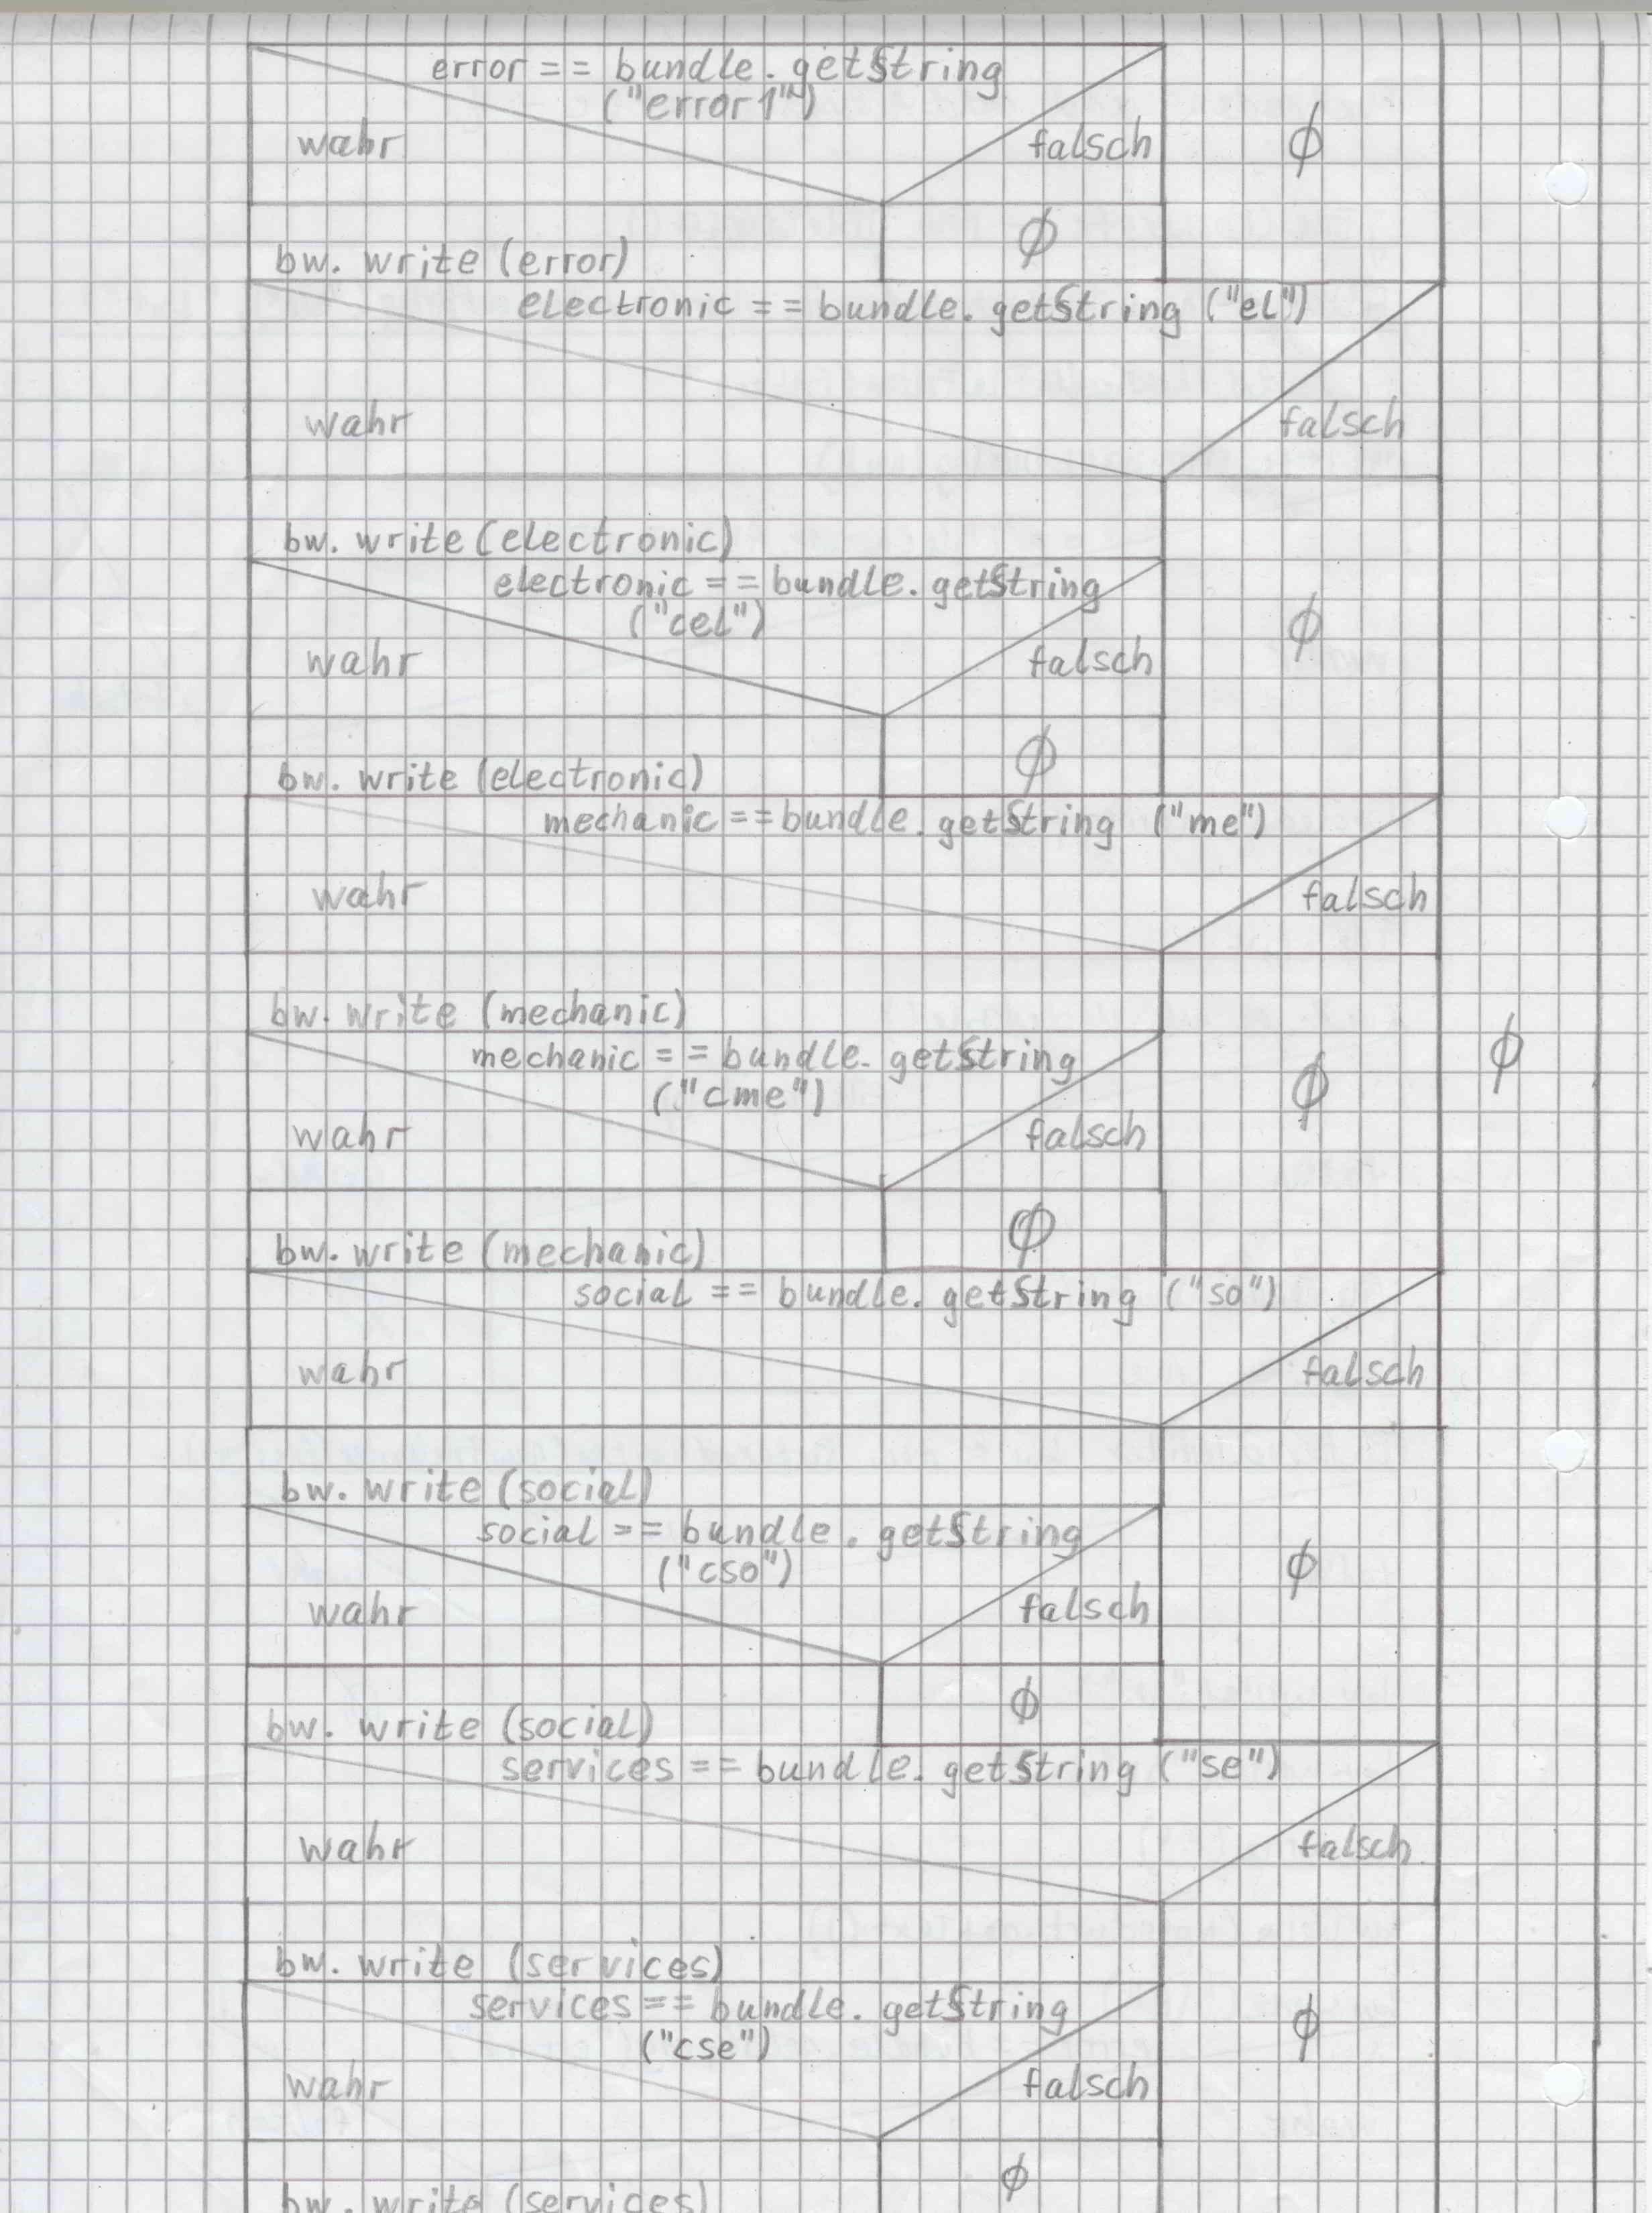 error == bundle.getString
("error1")
wahr falsch ϕ
ϕ
bw. write (error)
electronic == bundle. getString ("el")
wahr falsch
bw. write (electronic)
electronic == bundle. getString
("cel") ϕ
wahr falsch
ϕ
bw. write (electronic)
mechanic == bundle. getString ("me")
wahr falsch
bw. write (mechanic)
mechanic == bundle. getString ϕ
("cme") ϕ
wahr falsch
ϕ
bw. write (mechanic)
social == bundle. getString ("so")
wahr falsch
bw. write (social)
social == bundle. getString
("cso") ϕ
wahr falsch
ϕ
bw. write (social)
services == bundle. getString ("se")
wahr falsch
bw. write (services)
services == bundle. getString
("cse") ϕ
wahr falsch
ϕ
bw. write (services)